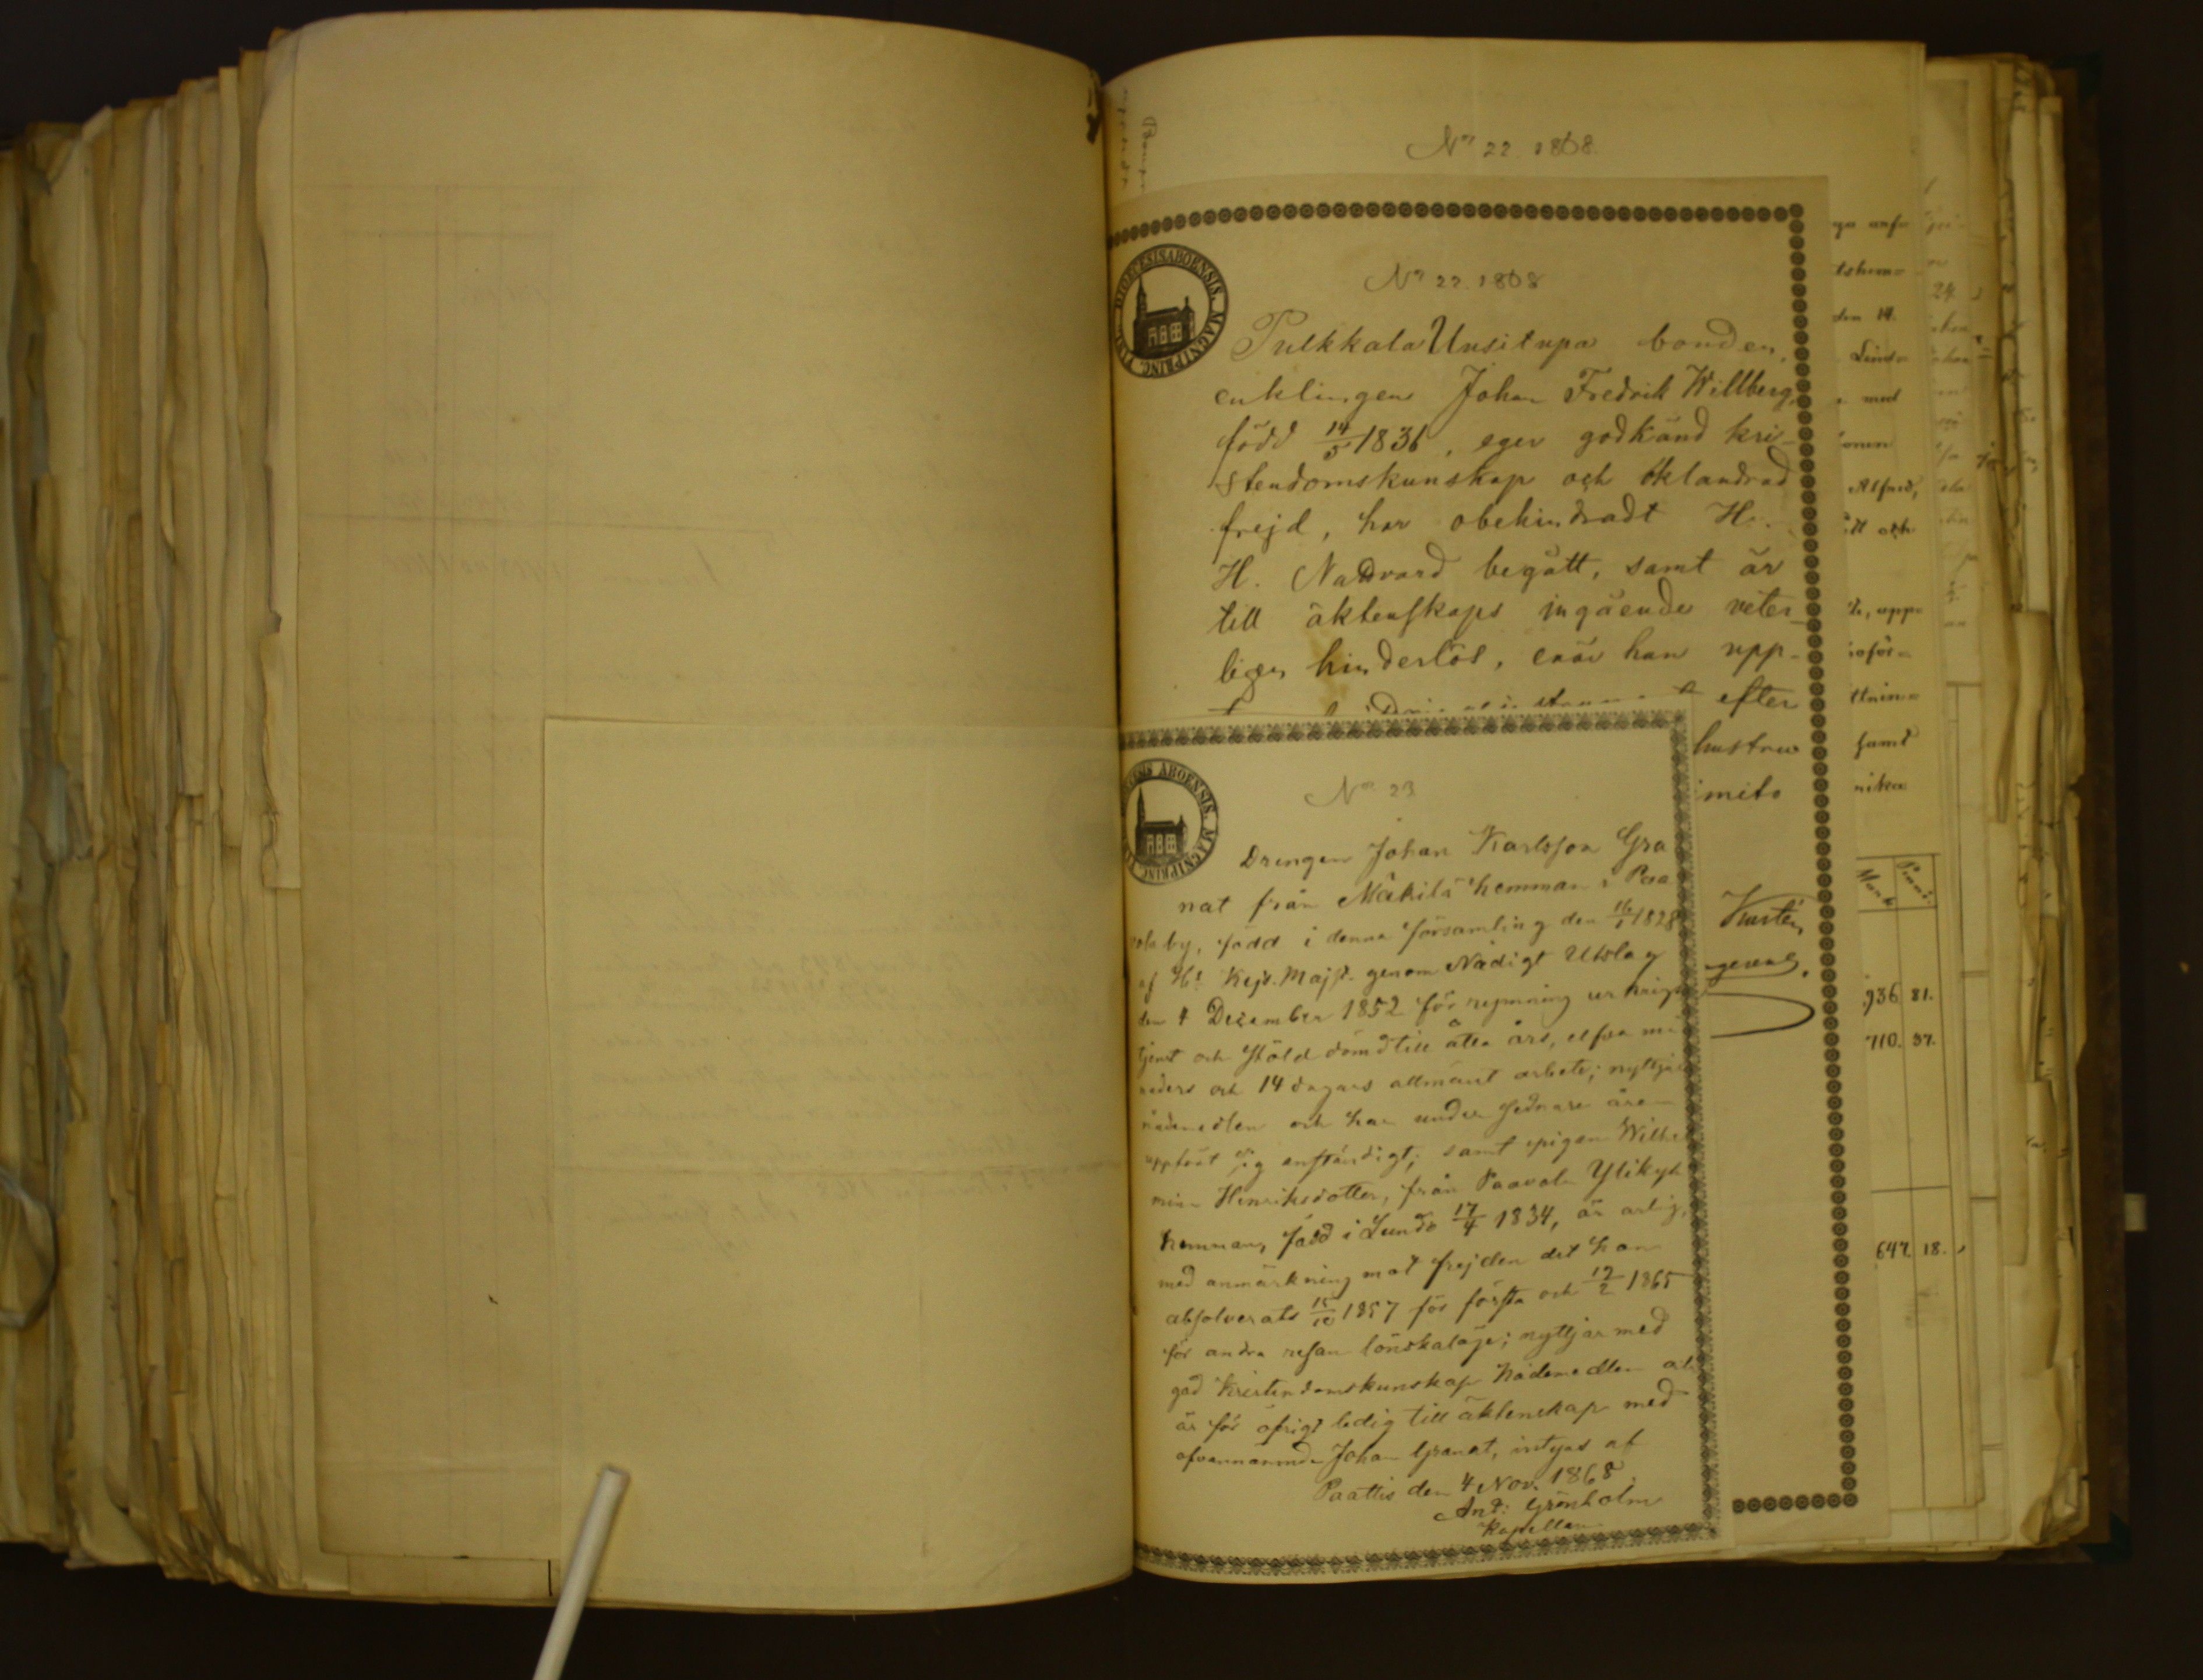 No 22 1868.
No 22. 1868
Pulkkala Uusitupa bonden,
enklingen Johan Fredrik Willberg,
född 14/5 1836, eger godkänd kri-
stendomskunskap och oklandrad
frejd, har obehindradt H.
H. Nattvard begått, samt är
till äktenskaps ingående veter-
ligen hinderlös, enär han upp-
efter
hustru
mito
No 23
Drengen Johan Karlsson Gra
nat från Mäkilä hemman i Paa
vola by, född i denna församling den 16/1 1828
af Hs Kejs. Majst. genom Nådigt Utslag
den 4 December 1852 för rymning ur krigs
tjenst och stöld dömd till åtta års, elfva må
naders och 14 dagars allmänt arbete; nyttjar
nådemedlen och har under sednare åren
uppfört sig anständigt; samt pigan Wilhel
mina Henriksdotter, från Paavola Ylikylä
hemman, född i Lundo 17/4 1834, är ärlig,
med anmärkning mot frejden det hon
absolverats 15/10 1857 för första och 12/2 1865
för andra resan lönskaläge; nyttjar med
god kristendomskunskap nådemedlen och
är för öfrigt ledig till äktenskap med
ofvannämnde Johan Granat, intygas af
Paattis den 4 Nov. 1868.
And: Grönholm
Kapellan
DIOECESIS ABOENSIS. MAGNI PRINC.
DIOECESIS ABOENSIS. MAGNI PRINC.
den 14.
med
Alfred,
samt
Mark Penni.
936 81.
710. 37.
647. 18.